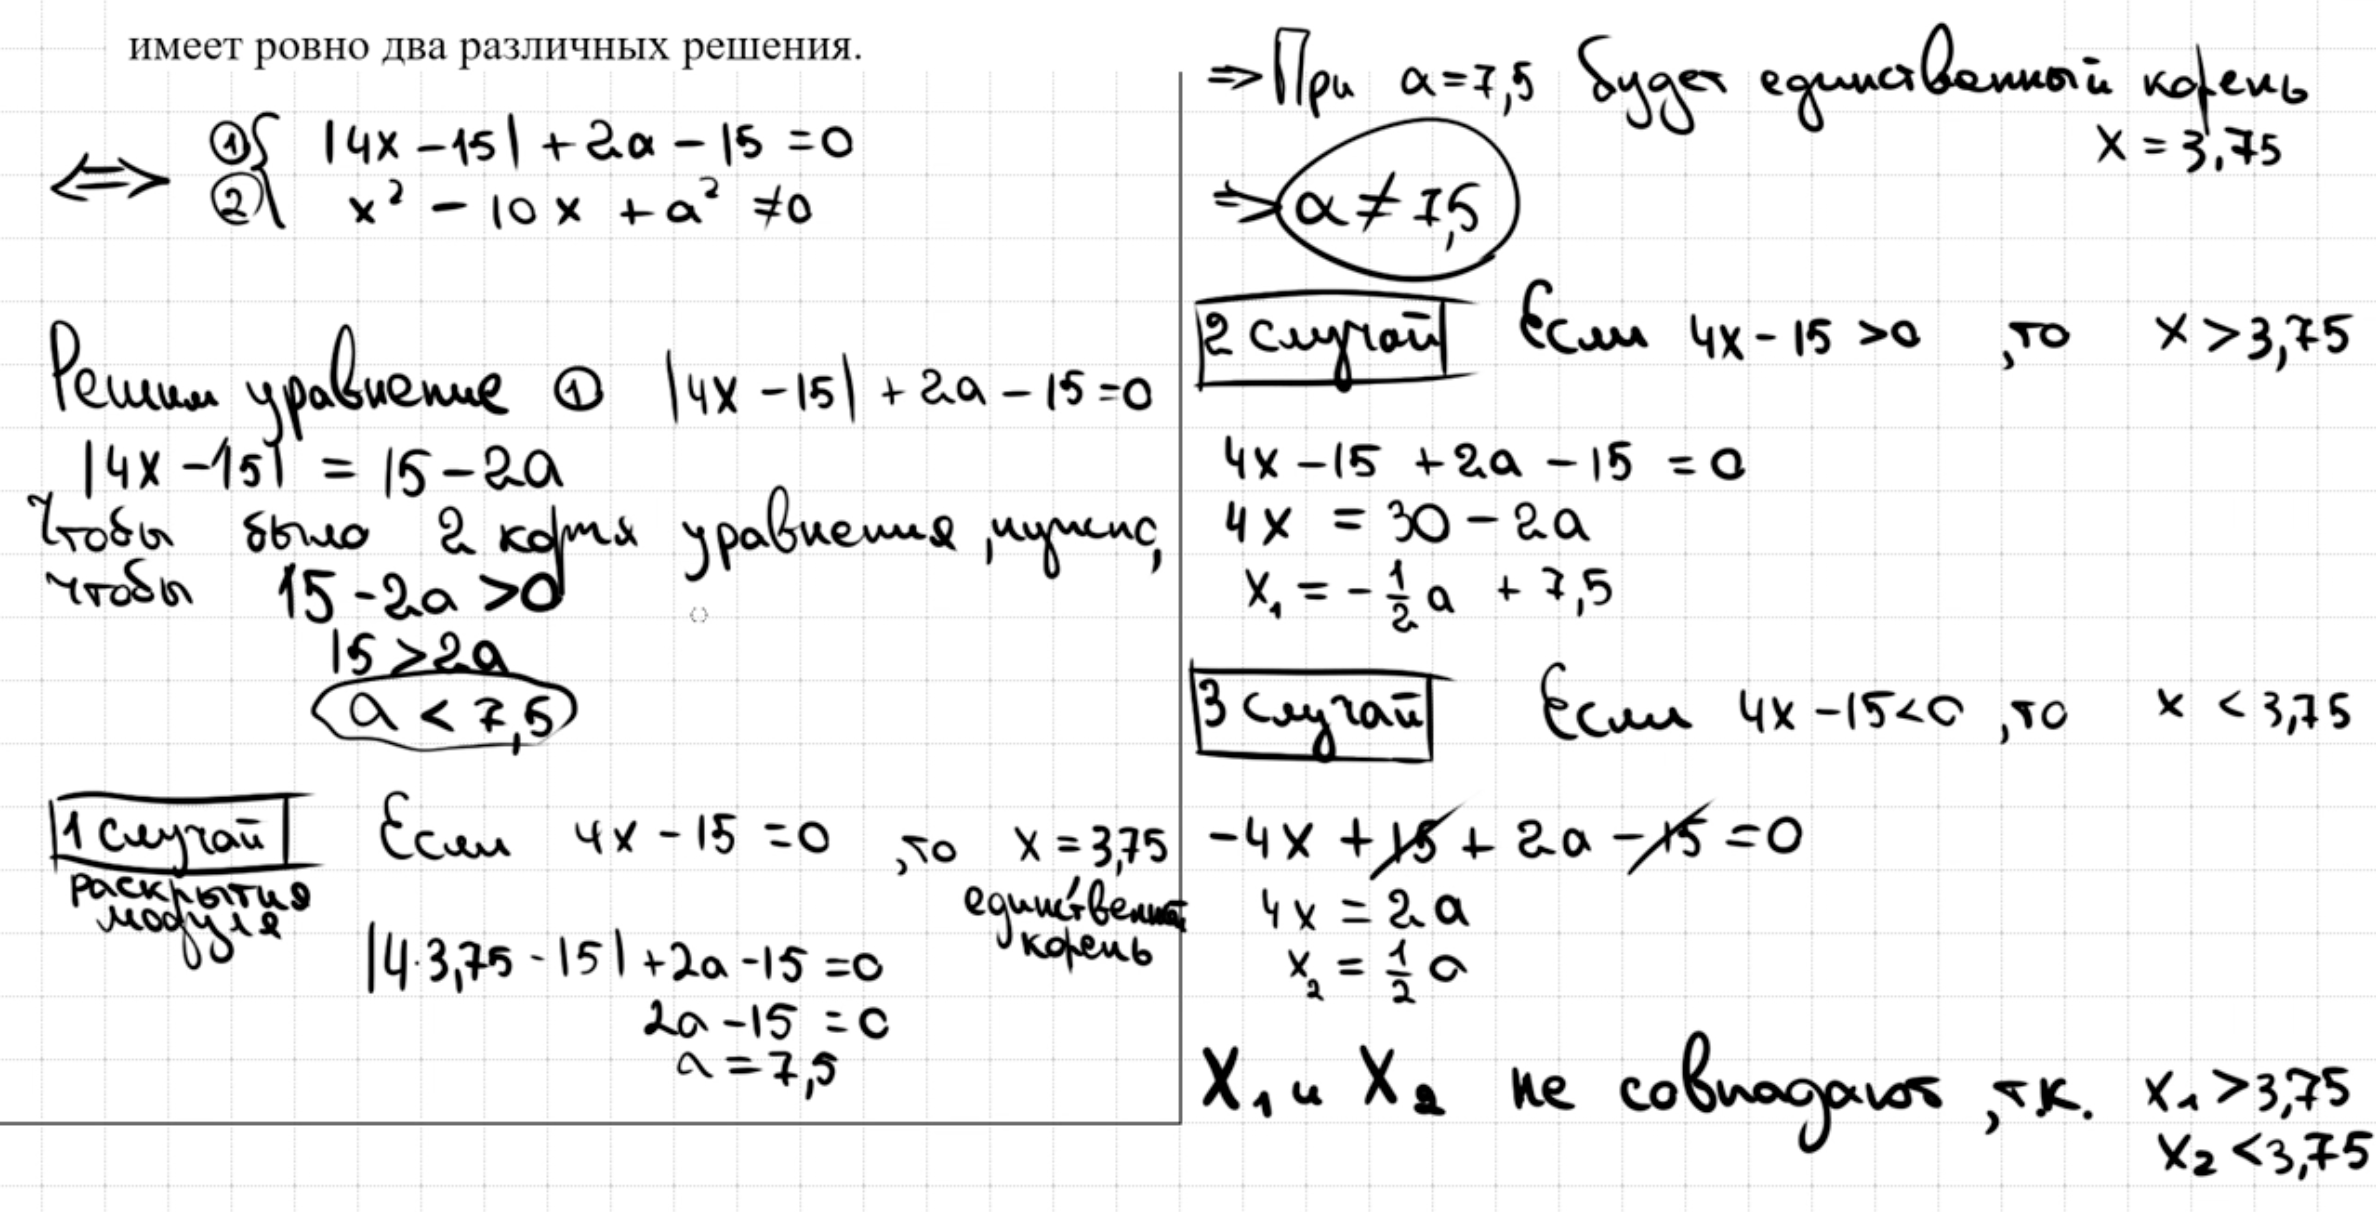 имеет ровно два различных решения.
⟺ ① { |4x - 15| + 2a - 15 = 0
② { x² - 10x + a² ≠ 0
Решим уравнение ① |4x - 15| + 2a - 15 = 0
|4x - 15| = 15 - 2a
Чтобы было 2 корня уравнения, нужно,
чтобы 15 - 2a > 0
15 > 2a
a < 7,5
1 случай Если 4x - 15 = 0, то x = 3,75
раскрытия
модуля
единственный
корень
|4·3,75 - 15| + 2a - 15 = 0
2a - 15 = 0
a = 7,5
⇒ При a = 7,5 будет единственный корень
x = 3,75
⇒ a ≠ 7,5
2 случай Если 4x - 15 > 0, то x > 3,75
4x - 15 + 2a - 15 = 0
4x = 30 - 2a
x₁ = - 1/2 a + 7,5
3 случай Если 4x - 15 < 0, то x < 3,75
-4x + 15 + 2a - 15 = 0
4x = 2a
x₂ = 1/2 a
X₁ и X₂ не совпадают, т.к. x₁ > 3,75
x₂ < 3,75